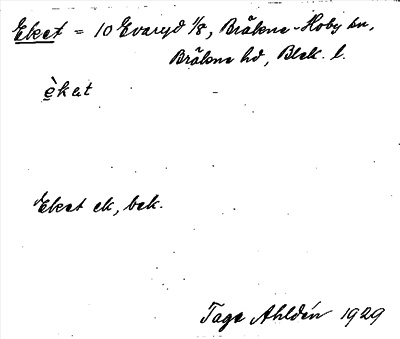 Eket = 10 Evaryd 1/8, Bräkne-Hoby sn,
Bräkne hd, Blek. l.
èkat
Eket ek, bek.
Tage Ahldén 1929